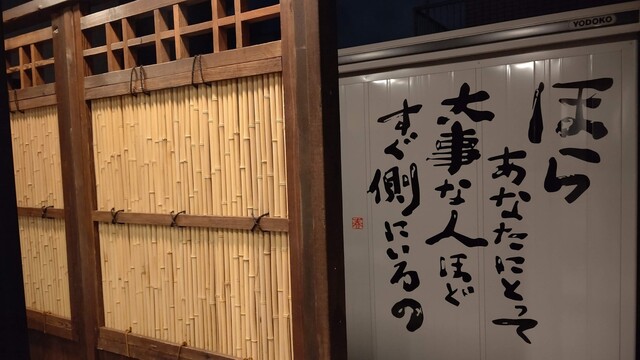 YODOKO
ほら
あなたにとって
大事な人ほど
すぐ側にいるの